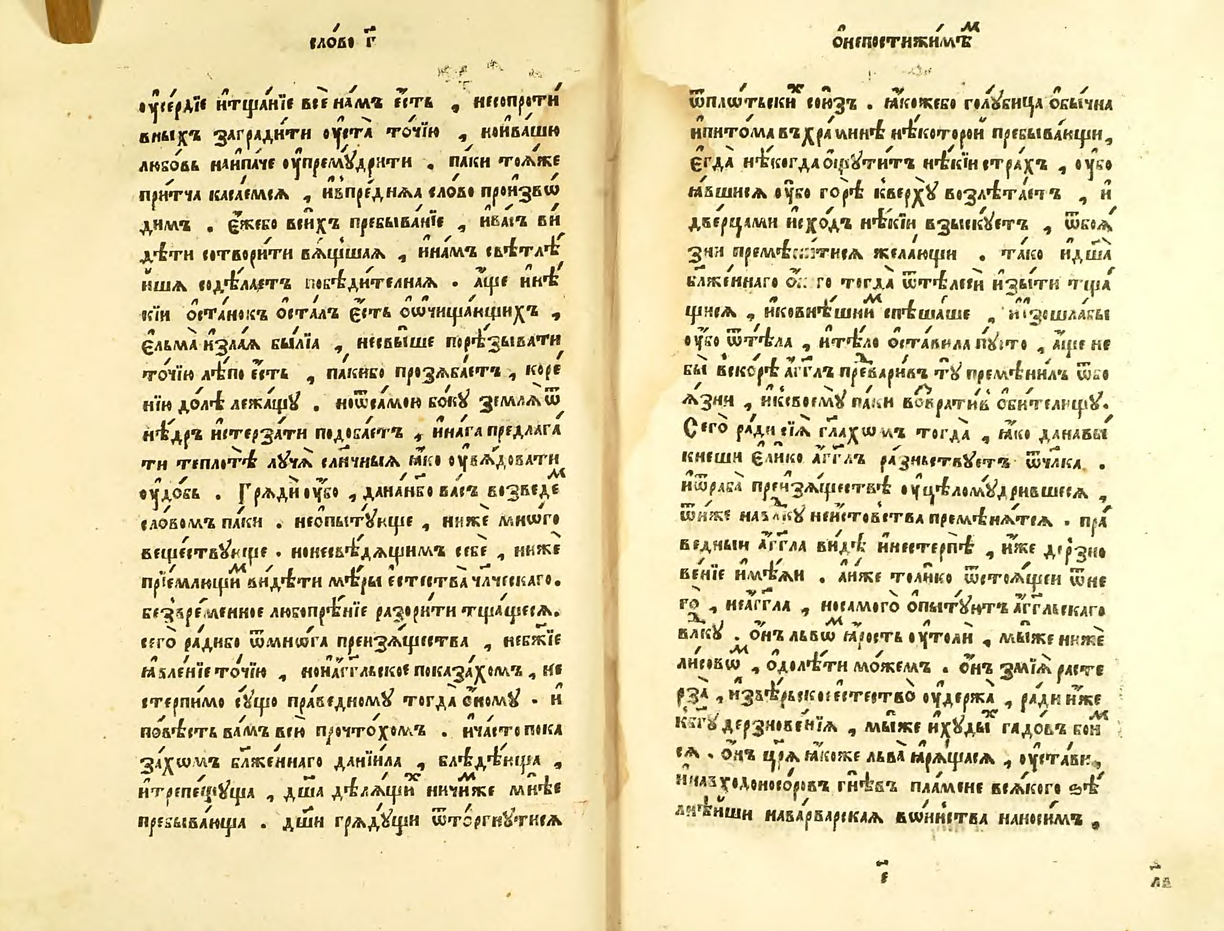 сло́во г҃
оу҆се́рдїе и҆тща́нїе всѐ на́мъ є҆́сть , несопроти́
вныхъ загради́ти оу҆ста̀ то́чїю , нои҆ва́шю
любо́вь наи҆па́че оу҆прему́дрити . па́ки то́яже
при́тча каса́емся , и҆впре́дняа сло́во произво́
димъ . є҆́жебо вси́хъ пребыва́нїе , и҆ва́съ ви́
дѣти сотвори́ти вя́щшая , и҆на́мъ свѣтлѣ́
йшя содѣ́лаетъ побѣди́телная . а҆́ще и҆нѣ́
кїи ѻ҆ста́нокъ ѻ҆ста́лъ є҆́сть ѻ҆ѡ҆чища́ющихъ ,
є҆льма̀ и҆зла́я бы́лїа , несвы́ше порѣ́зывати
то́чїю лѣ́по є҆́сть , па́кибо прозяба́етъ , коре́
нїю до́лѣ лежа́щу . ноѿсамо́ю бо́ку земля̀ ѿ
нѣ́дръ и҆стерза́ти подоба́етъ , и҆на́га предлага́
ти теплотѣ̀ лучя̀ сл҃нчныя ꙗ҆́ко оу҆вя́довати
оу҆до́бь . Гряди́ оу҆́бо , дана́нбо ва́съ возведе́м
сло́вомъ па́ки . неѻ҆пыту́юще , нижѐ мно́го
веществу́юще . нонесвѣ́дящимъ себѐ , нижѐ
прїе́млющим ви́дѣти мѣ́ры є҆стества̀ чл҃ческаго .
безвре́менное любопрѣ́нїе разори́ти тща́щеся .
сего̀ ра́дибо ѿмно́га преизя́щества , небж҃їе
ꙗ҆вле́нїе то́чїю , нои҆а҆́гг҃льское показа́хомъ , не
стерпи́мо су́що пра́ведному тогда̀ ѻ҆́ному . и҆
по́вѣсть ва́мъ всю̀ прочто́хомъ . и҆ча́сто пока
за́хомъ бл҃же́ннаго данїи́ла , блѣдѣ́юща ,
и҆трепе́щуща , дш҃а дѣ́лящих ничи́мже мнѣ́е
пребыва́юща . дш҃и гряду́щи ѿто́ргнутися
ѻ҆непостижи́мѣм
ѿплѡ́тьских сою́зъ . ꙗ҆́кожебо голу́бица ѻ҆бы́чна
и҆пито́ма въхра́минѣ нѣ́которой пребыва́ющи ,
є҆гда̀ нѣ́когда ѻ҆щу́титъ нѣ́кїи стра́хъ , оу҆бо
ꙗ҆́вшися оу҆́бо го́рѣ кве́рху возлѣта́етъ , и҆
две́рцами и҆схо́дъ нѣ́кїи взы́скуетъ , ѿбоя́
зни премѣни́тися жела́ющи . та́ко и҆дш҃а̀
бл҃же́ннаго ѻ҆́ного тогда̀ ѿтѣ́леси и҆зы́ти тща́
щися , и҆ковнѣ́шним спѣ́шаше , и҆и҆зошла́бы
оу҆́бо ѿтѣ́ла , и҆тѣ́ло ѻ҆ста́вила пу́сто , а҆́ще не
бы̀ вско́рѣ а҆́гг҃лъ превари́въ ту̀ премѣни́лъ ѿбо
я́зни , и҆ксвоему̀ па́ки возврати́въ ѻ҆би́телищу .
Сего̀ ра́ди сїя̀ гл҃ахомъ тогда̀ , ꙗ҆́ко данавы̀
кнеши є҆ли́ко а҆́гг҃лъ ра́знствуетъ ѿчл҃ка .
и҆ѿраба̀ преизя́ществѣ оу҆цѣлому́дрившеся ,
ѿни́же навлⷣку неи҆сто́вства премѣня́тся . пра́
ведныи а҆́гг҃ла ви́дѣ и҆нестерпѣ̀ , и҆́же дерзно
ве́нїе и҆мѣ́яи . а҆и҆же толи́ко ѿстоя́щеи ѿне
го̀ , неа҆́гг҃ла , носамого̀ ѻ҆пыту́ютъ а҆́гг҃льскаго
влⷣку . ѻ҆́нъ льво́м ꙗ҆́рость оу҆толѝ , мы́же нижѐ
ли́совом , ѻ҆долѣ́ти мо́жемъ . ѻ҆́нъ змїя̀ расте
рза̀ , и҆звѣ́рьское є҆стество̀ оу҆держа̀ , ра́ди и҆́же
кбг҃у дерзнове́нїя , мы́же и҆худых га́довъ бои́м
ся . ѻ҆́нъ цр҃я ꙗ҆́коже льва̀ ꙗ҆ря́щася , оу҆ста́ви ,
и҆навходоно́соровъ гнѣ́въ пла́мене вся́кого ѕѣ
лнѣ́йши нава́рварская во́инства нано́симъ ,
є҃